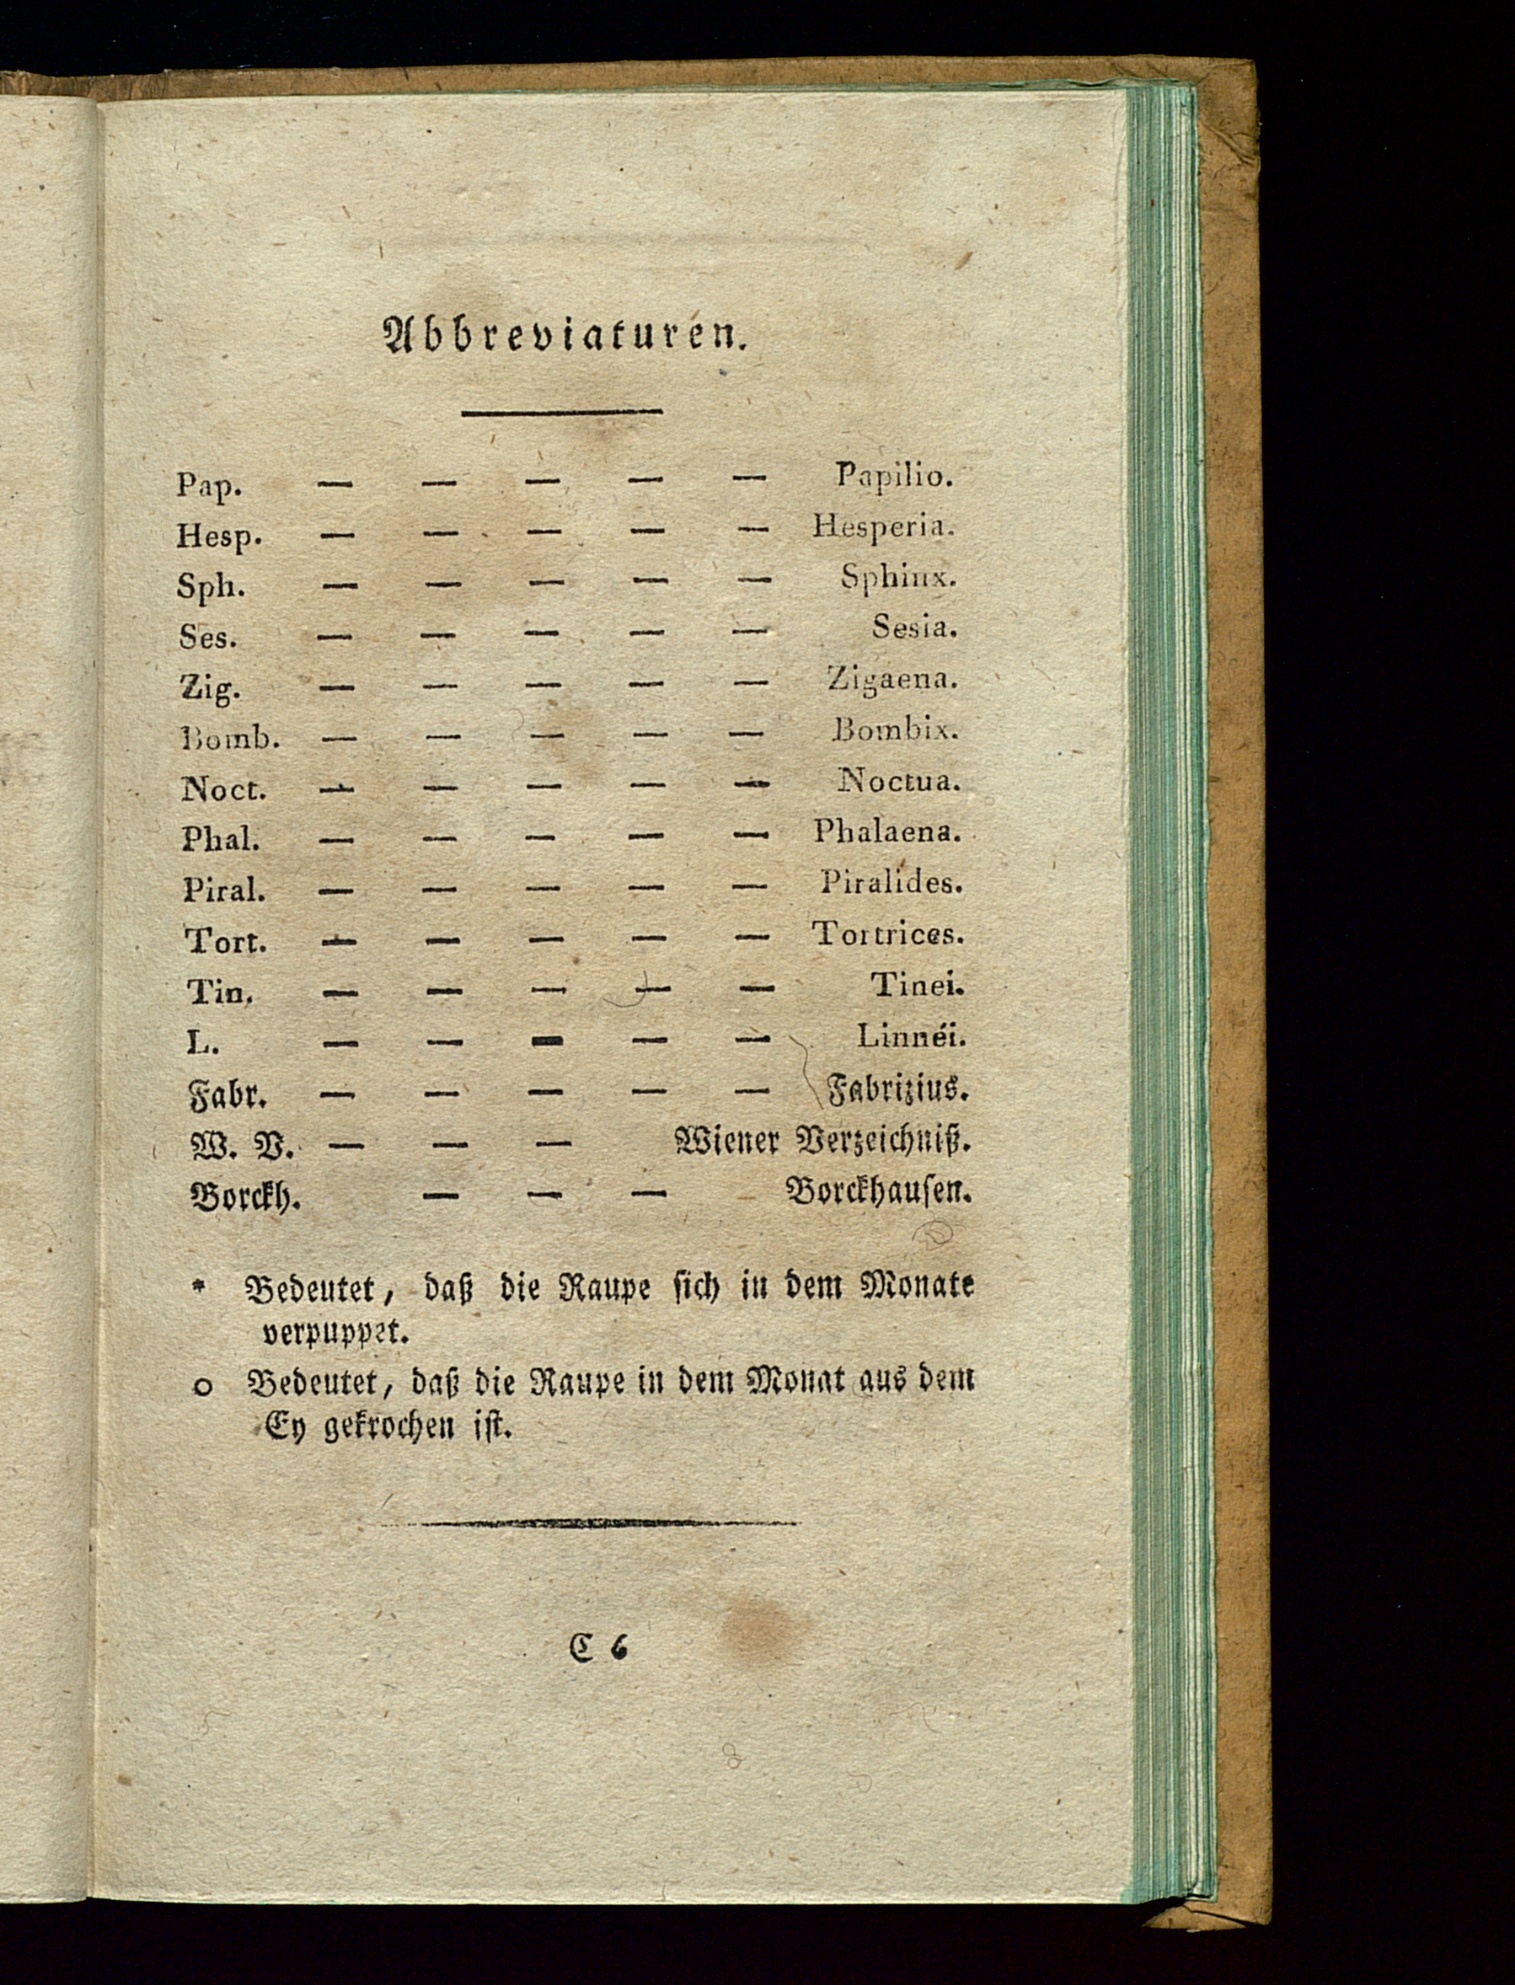 Abbreviaturen.
Pap. — — — — — Papilio.
Hesp. — — — — — Hesperia.
Sph. — — — — — Sphinx.
Ses. — — — — — Sesia.
Zig. — — — — — Zigaena.
Bomb. — — — — — Bombix.
Noct. — — — — — Noctua.
Phal. — — — — — Phalaena.
Piral. — — — — — Piralides.
Tort. — — — — — Tortrices.
Tin. — — — — — Tinei.
L. — — — — — Linnéi.
Fabr. — — — — — Fabrizius.
W. V. — — — Wiener Verzeichniß.
Borckh. — — — Borckhausen.
* Bedeutet, daß die Raupe sich in dem Monate
verpuppet.
o Bedeutet, daß die Raupe in dem Monat aus dem
Ey gekrochen ist.
C 6